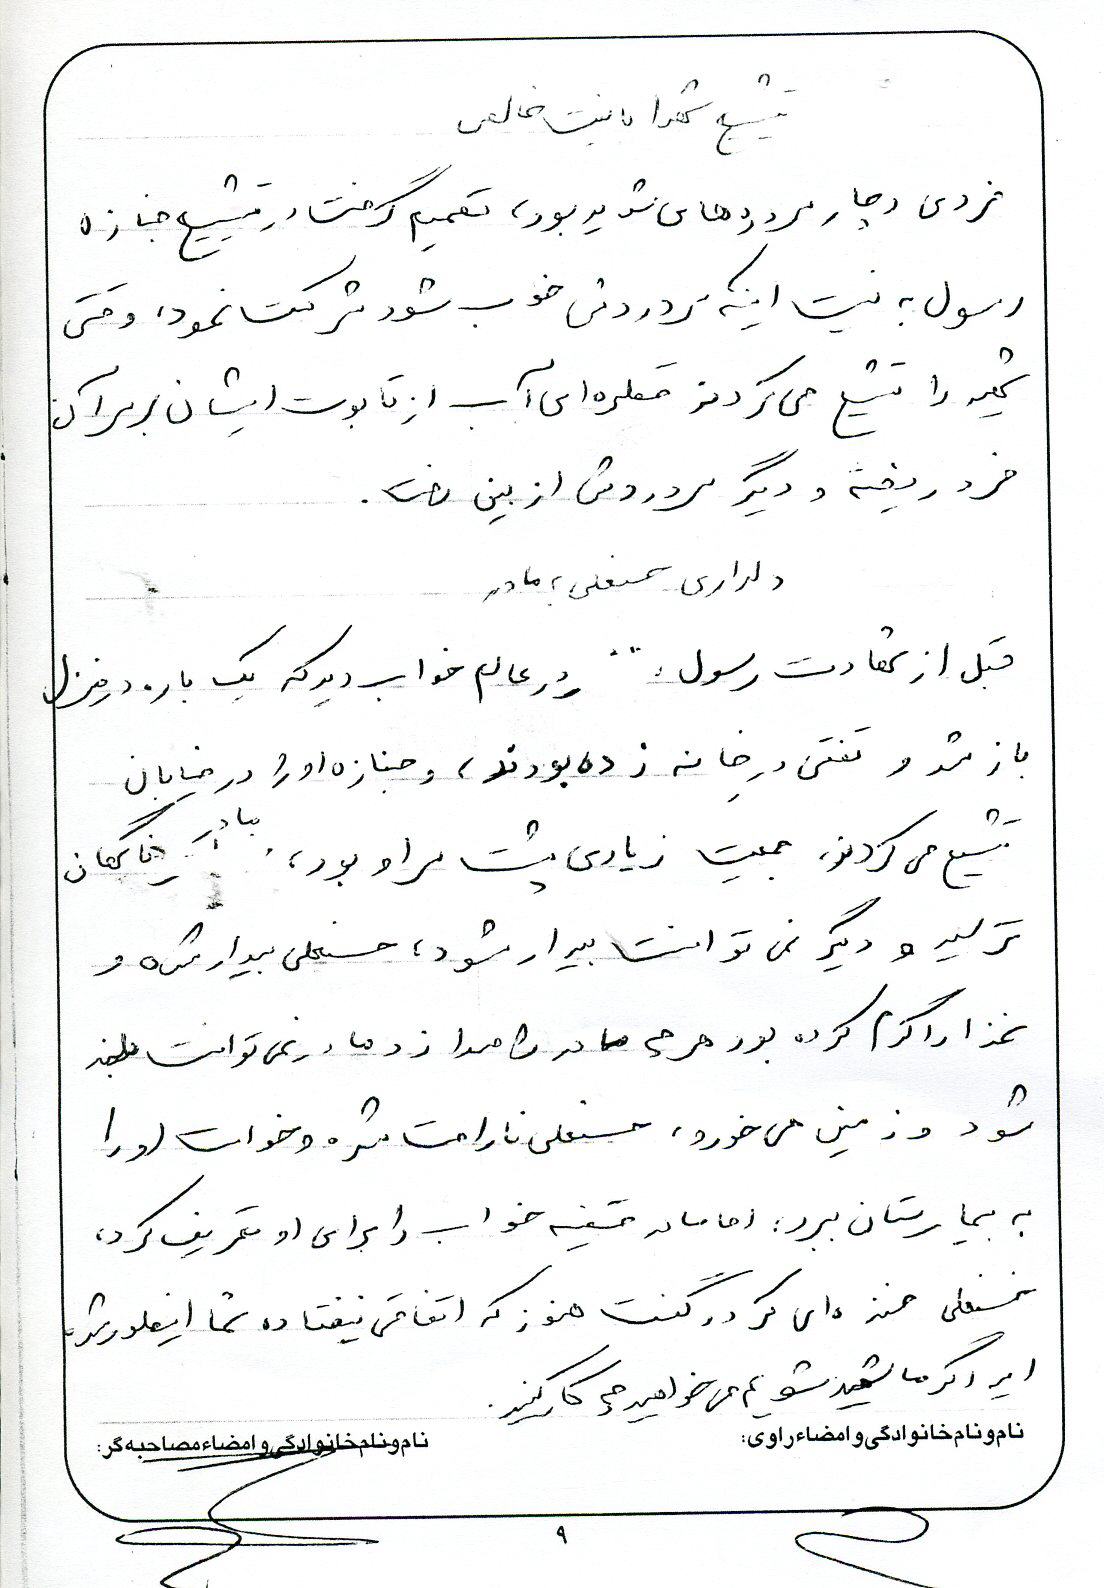 تشییع شهدا با نیت خالص
فردی دچار سردردهای شدید بود، تصمیم گرفت در تشییع جنازه
رسول به نیت اینکه سردردش خوب شود شرکت نمود، وقتی
شهید را تشییع می‌کردند قطره‌ای آب از تابوت ایشان بر سر آن
فرد ریخته و دیگر سردردش از بین رفت.
دلداری حسنعلی به مادر
قبل از شهادت رسول، در عالم خواب دید که یک باره در منزل
باز شد و تفتی در خانه زده بودند، و جنازه او را در خیابان
تشییع می‌کردند، جمعیت زیادی پشت سر او بود، مادر ناگهان
ترسید و دیگر نمی‌توانست بیدار شود، حسنعلی بیدار شده و
غذا را گرم کرده بود هر چه مادر را صدا زد مادر نمی‌توانست بلند
شود و زمین می‌خورد، حسنعلی ناراحت شده و خواست او را
به بیمارستان ببرد، اما مادر قضیه خواب را برای او تعریف کرد،
حسنعلی خنده‌ای کرد و گفت هنوز که اتفاقی نیفتاده شما اینطور شده
اید اگر ما شهید شویم می‌خواهید چه کار کنید.
نام و نام خانوادگی و امضاء راوی:
نام و نام خانوادگی و امضاء مصاحبه‌گر:
۹